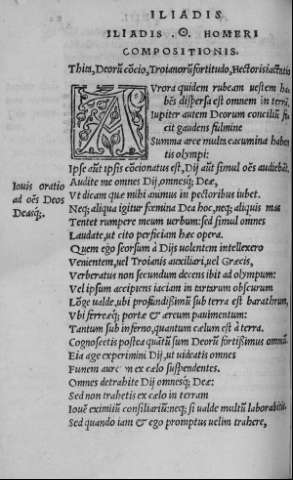 ILIADIS
ILIADIS .Θ. HOMERI
COMPOSITIONIS.
Thita, Deorũ cõcio, Troianorũ fortitudo, Hectoris iactatio
AVrora quidem rubeam uestem ha
bẽs dispersa est omnem in terrã,
Iupiter autem Deorum conciliũ fe
cit gaudens fulmine
Summa arce multa cacumina haben
tis olympi:
Ipse aũt ipsis cõcionatus est, Dij aũt simul oẽs audiebãt.
Iouis oratio
ad oẽs Deos
Deasq;.
Audite me omnes Dij, omnesq; Deæ,
Vt dicam quæ mihi animus in pectoribus iubet.
Neq; aliqua igitur fœmina Dea hoc, neq; aliquis mas
Tentet rumpere meum uerbum: sed simul omnes
Laudate, ut cito perficiam hæc opera.
Quem ego seorsum à Dijs uolentem intellexero
Venientem, uel Troianis auxiliari, uel Græcis,
Verberatus non secundum decens ibit ad olympum:
Vel ipsum accipiens iaciam in tartarum obscurum
Lõge ualde, ubi profundissimũ sub terra est barathrum,
Vbi ferreæq; portæ & æreum pauimentum:
Tantum sub inferno, quantum cælum est à terra.
Cognoscetis postea quãtũ sum Deorũ fortissimus omniũ.
Eia age experimini Dij, ut uideatis omnes
Funem aureum ex cælo suspendentes.
Omnes detrahite Dij omnesq; Deæ:
Sed non trahetis ex cælo in terram
Iouẽ eximiũ consiliariũ: neq; si ualde multũ laborabitis.
Sed quando iam & ego promptus uelim trahere,